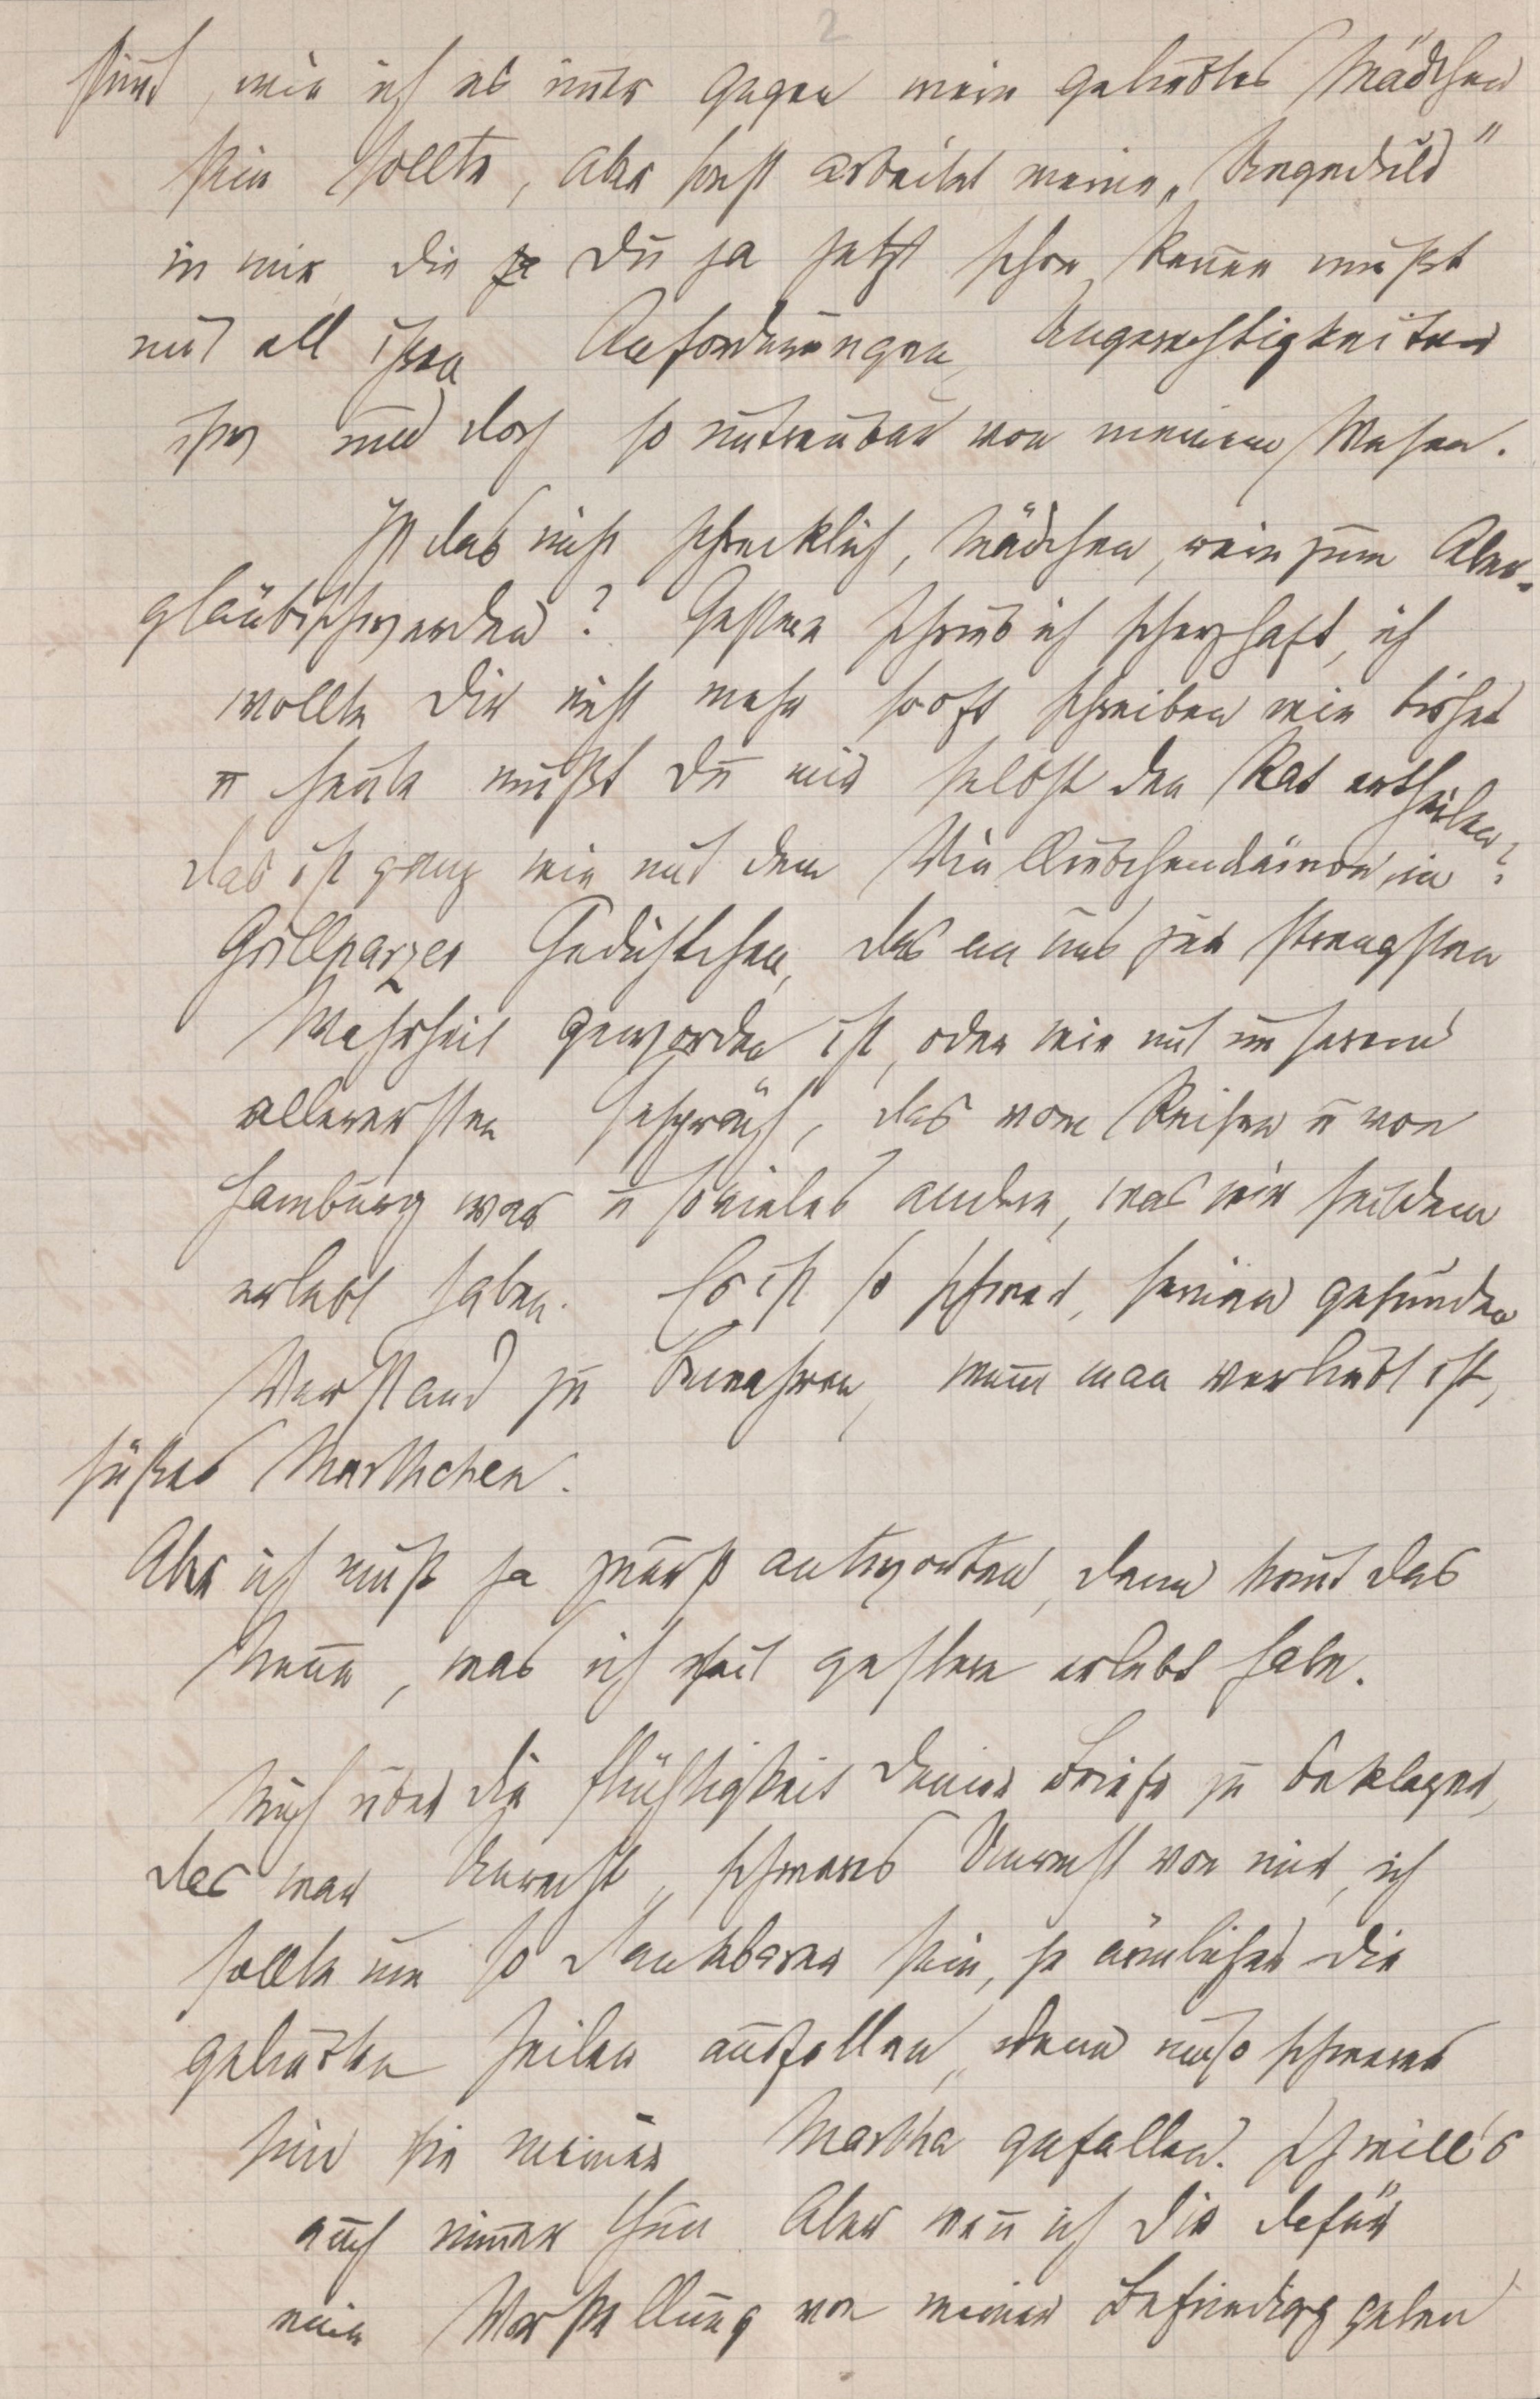 2
sind, wie ich es immer gegen mein geliebtes Mädchen
sein sollte, aber sonst arbeitet meine „Ungeduld“
in mir, die Du ja jetzt schon kennen mußt
mit all ihren Anforderungen, Ungerechtigkeiten
und doch so untrennbar von meinem Wesen.
Ist das nicht schrecklich, Mädchen, rein zum Aber-
gläubischwerden? Gestern schrieb ich scherzhaft, ich
wollte Dir nicht mehr so oft schreiben wie bisher
u heute mußt Du mir selbst den Rat ertheilen?
das ist ganz wie mit dem in
Grillparzer Gedichtchen, das an uns zur strengsten
Wahrheit geworden ist, oder wie mit unserem
allerersten Gespräch, das vom Reisen u von
Hamburg war u sovieles andere, was wir seitdem
erlebt haben. Es ist so schwer, seinen gesunden
Verstand zu bewahren, wenn man verliebt ist,
süßes Marthchen.
Aber ich muß ja zuerst antworten, dann kommt das
Neue, was ich seit gestern erlebt habe.
Mich über die Flüchtigkeit Deiner Briefe zu beklagen,
das war Unrecht, schweres Unrecht von mir, ich
sollte um so dankbarer sein, je ärmlicher die
geliebten Zeilen ausfallen, denn umso schwerer
sind sie meiner Martha gefallen. Ich will's
auch immer thun Aber wenn ich Dir dafür
eine Vorstellung von meiner Befriedigg geben